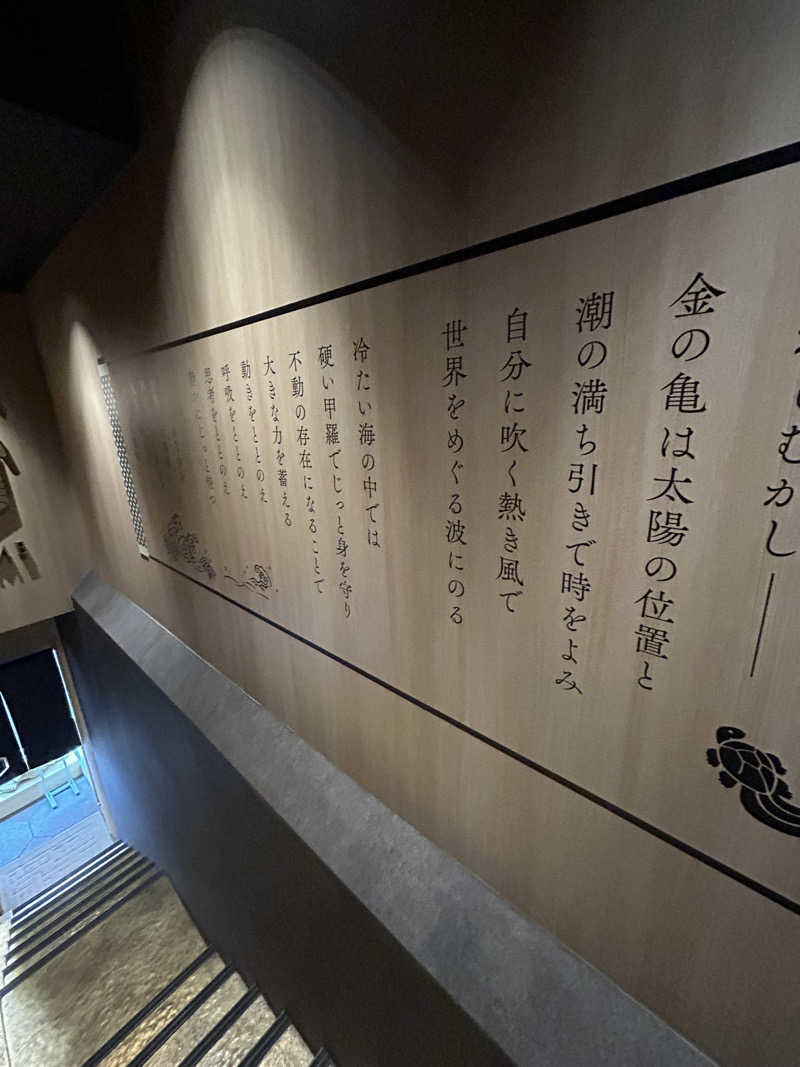 むかし——
金の亀は太陽の位置と
潮の満ち引きで時をよみ
自分に吹く熱き風で
世界をめぐる波にのる
冷たい海の中では
硬い甲羅でじっと身を守り
不動の存在になることで
大きな力を蓄える
動きをととのえ
呼吸をととのえ
思考をととのえ
にじっと待つ